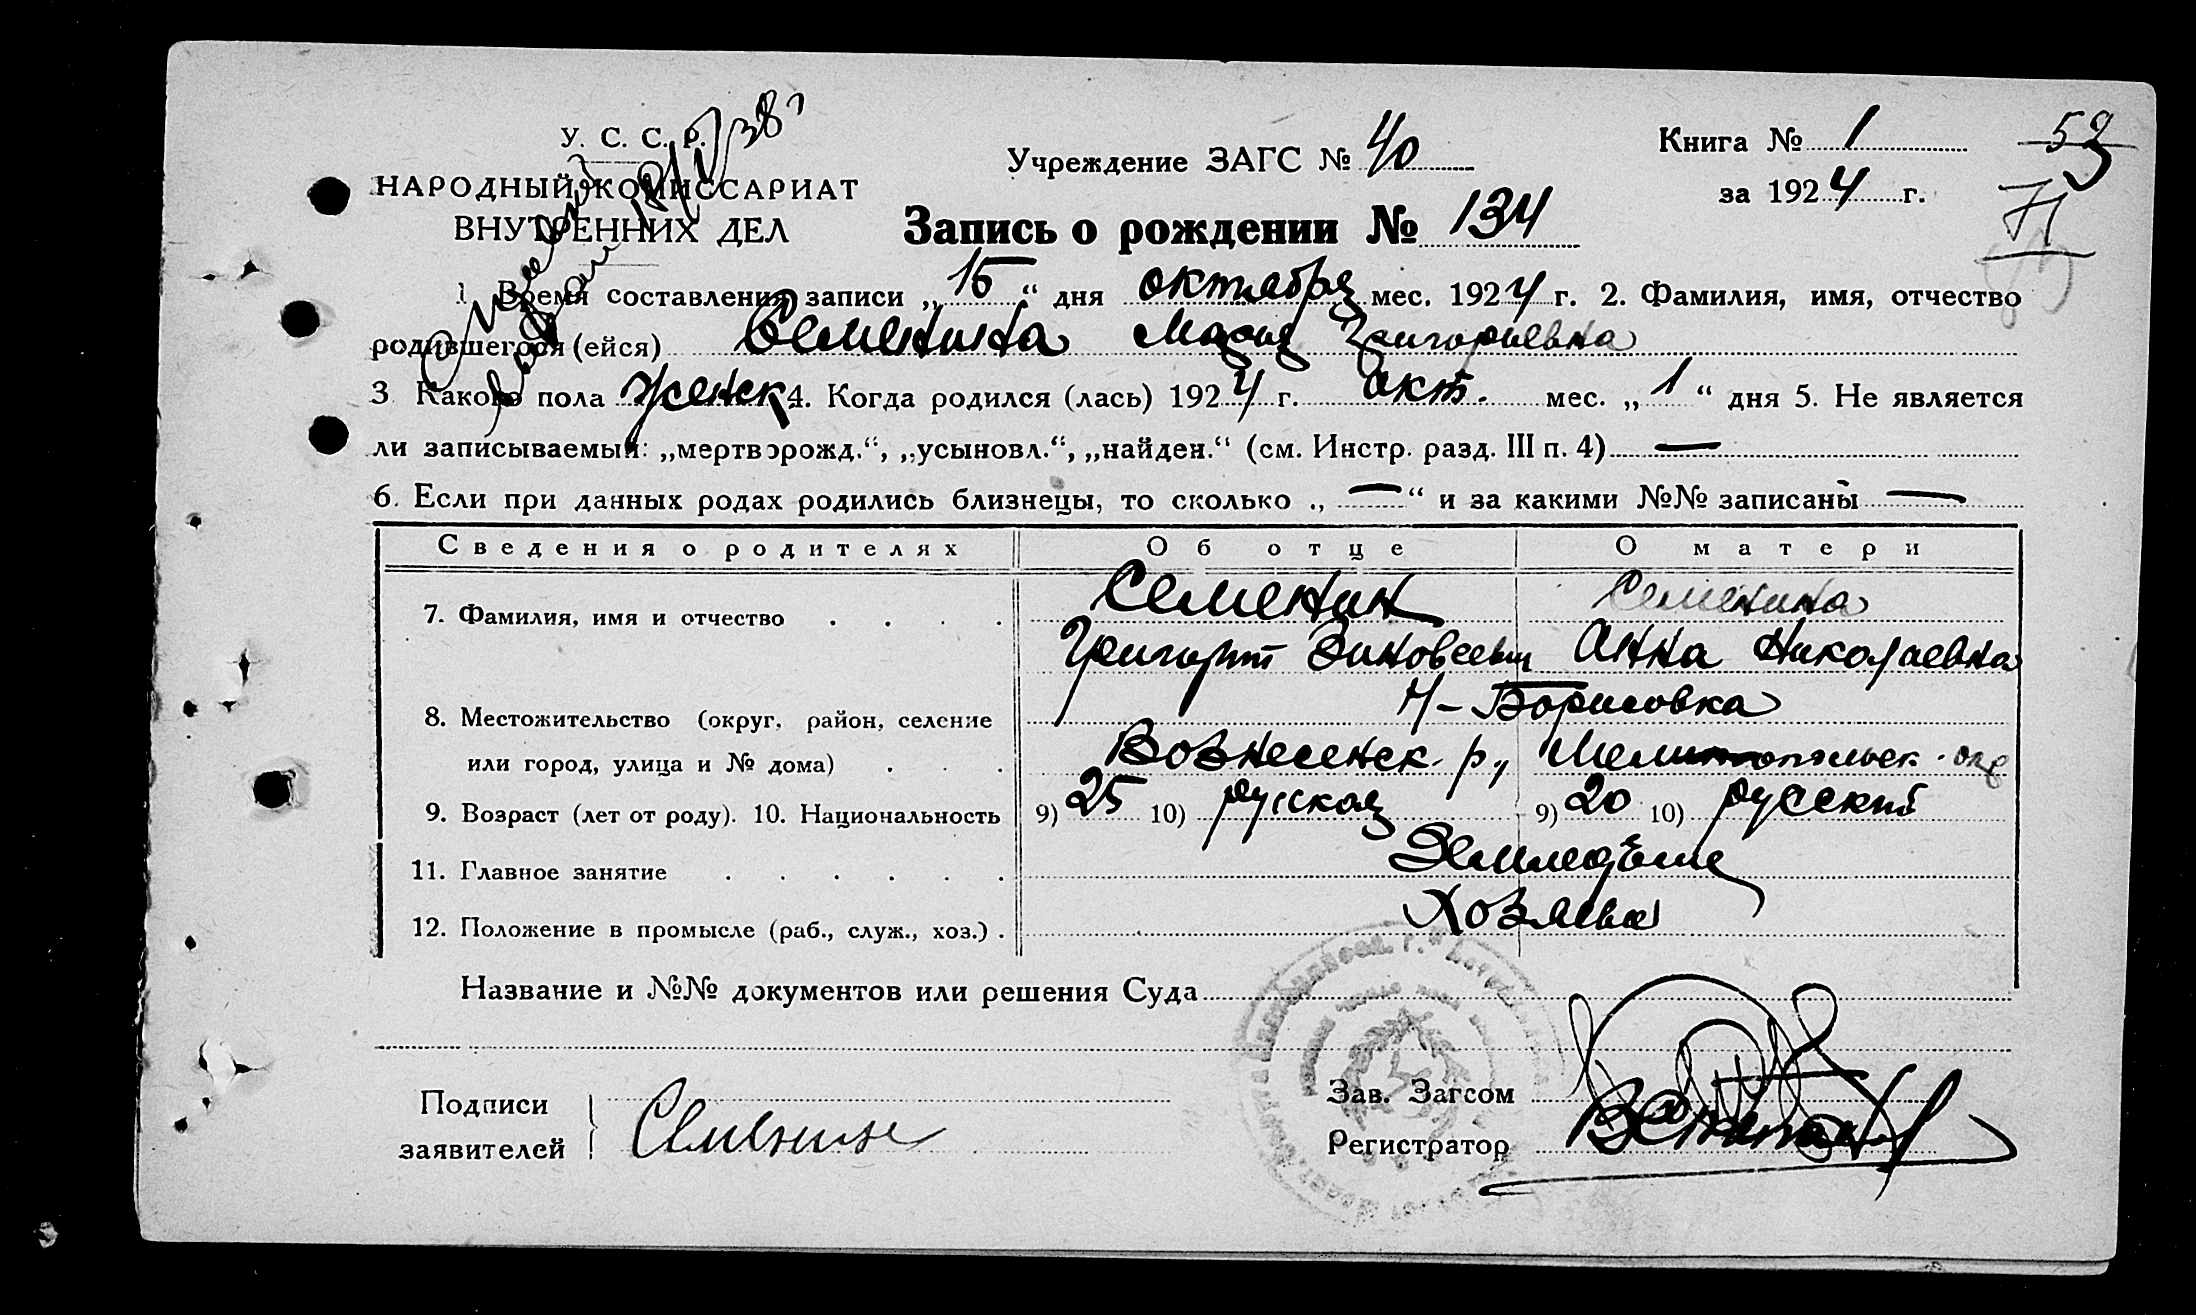 У. С. С. Р.
НАРОДНЫЙ КОМИССАРИАТ
ВНУТРЕННИХ ДЕЛ
Учреждение ЗАГС № 40
Книга № 1
за 1924 г.
59
71
Запись о рождении № 134
1. Время составления записи „15“ дня октября мес. 1924 г. 2. Фамилия, имя, отчество
родившегося (ейся) Семенина Мария Григорьевна
3 Какого пола женск. 4. Когда родился (лась) 1924 г. окт. мес. „1“ дня 5. Не является
ли записываемый: „мертворожд.“, „усыновл.“, „найден.“ (см. Инстр. разд. III п. 4) —
6. Если при данных родах родились близнецы, то сколько „—“ и за какими №№ записаны —
Сведения о родителях Об отце О матери
7. Фамилия, имя и отчество . . . . Семенин Семенина
Григорий Зиновеевич Анна Николаевна
8. Местожительство (округ, район, селение Н-Борисовка
или город, улица и № дома) . . . Вознесенск. р., Мелитопольск. окр
9. Возраст (лет от роду). 10. Национальность 9) 25 10) русская 9) 20 10) русский
11. Главное занятие . . . . . . Земледелие
12. Положение в промысле (раб., служ., хоз.) . Хозяева
Название и №№ документов или решения Суда
Подписи
заявителей Семенин
Зав. Загсом
Регистратор